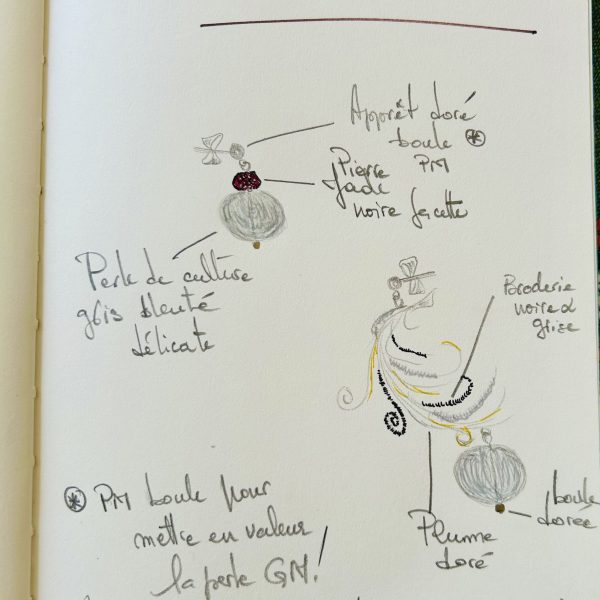 Apprêt doré
boule ⊛
PM
Pierre
Jade
noire facette
Perle de culture
gris bleuté
délicate
Broderie
noire &
grise
⊛ PM boule pour
mettre en valeur
la perle GM!
boule
dorée
Plume
doré